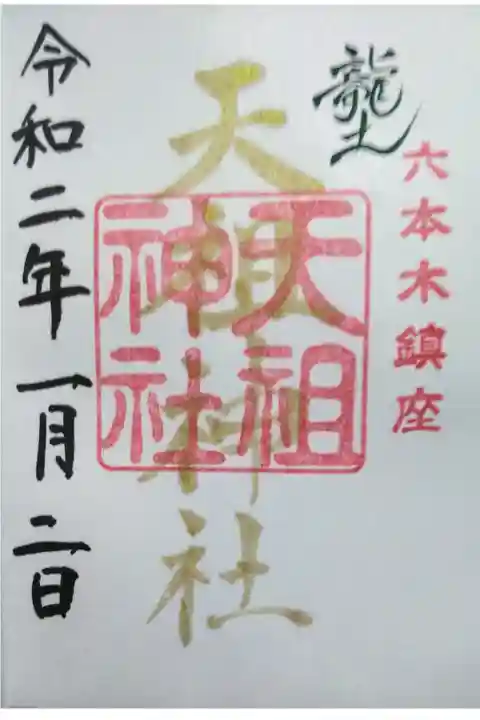 龍土
六本木鎮座
天祖神社
天祖
神社
令和二年一月二日